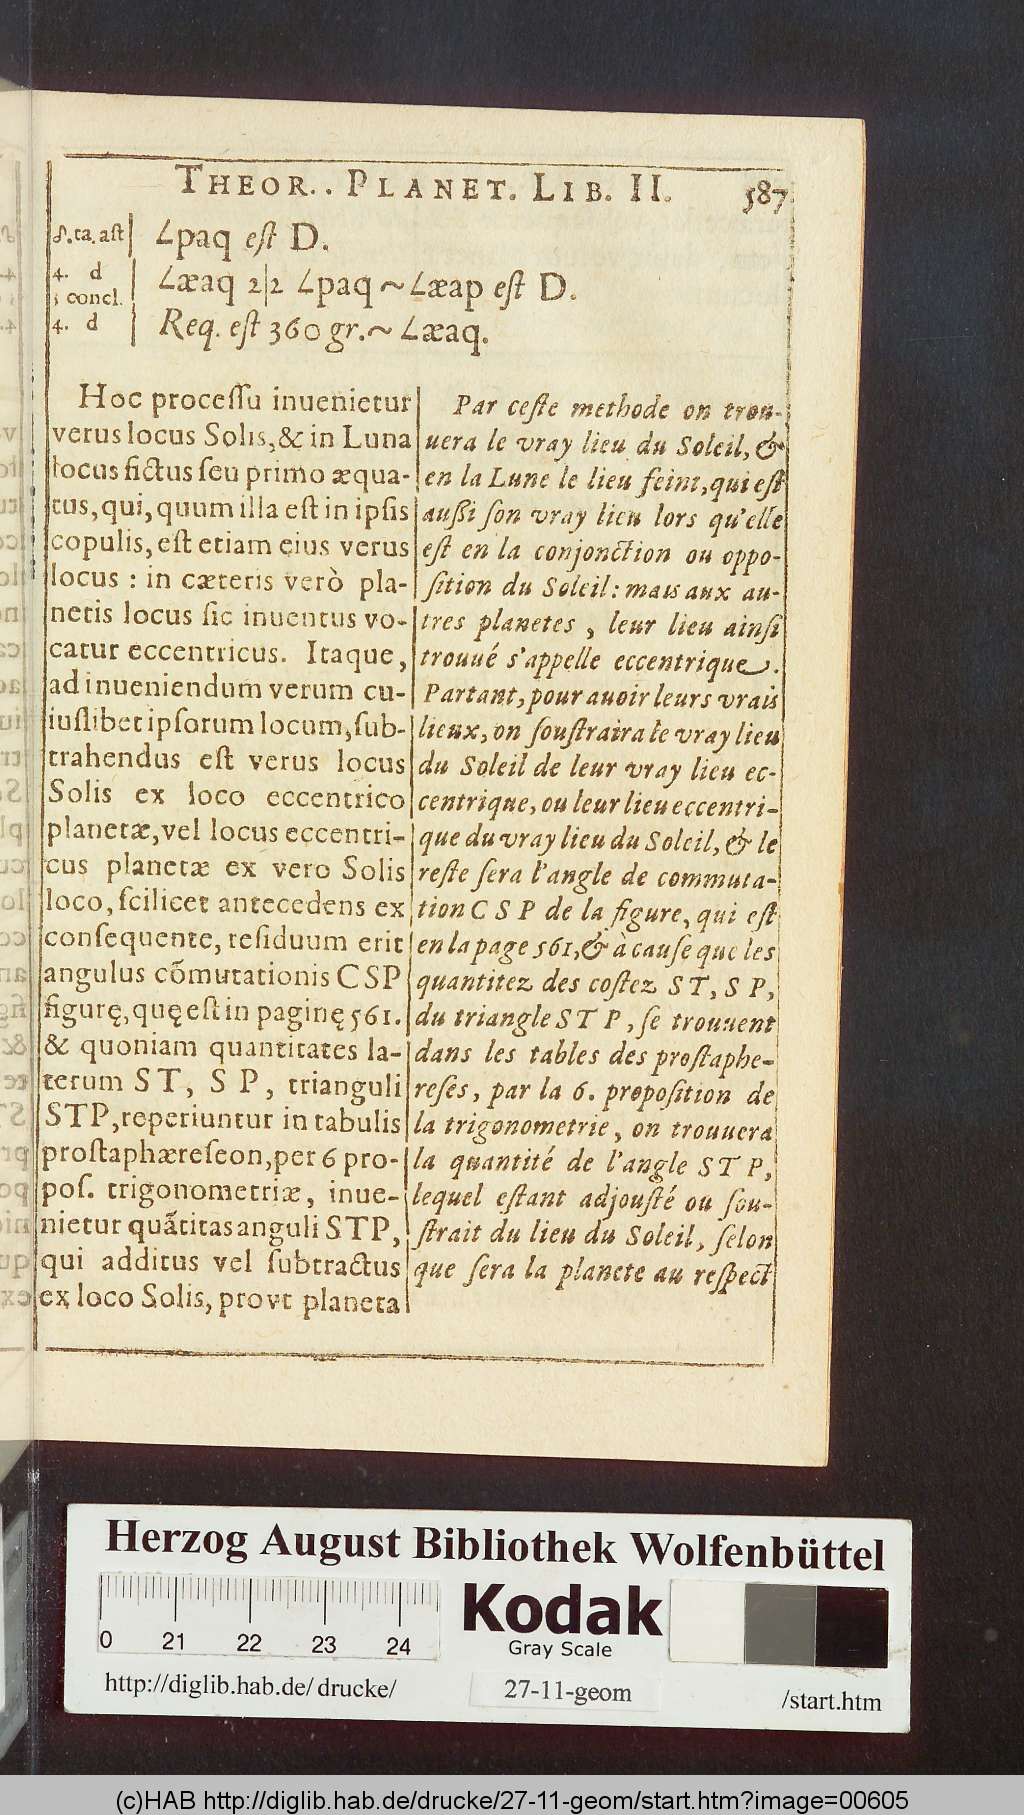 THEOR.. PLANET. LIB. II. 587
♂.ta. ast | ∠paq est D.
4. d | ∠æaq 2|2 ∠paq ~ ∠æap est D.
5 concl.
4. d | Req. est 360 gr. ~ ∠æaq.
Hoc processu inuenietur
verus locus Solis, & in Luna
locus fictus seu primo æqua-
tus, qui, quum illa est in ipsis
copulis, est etiam eius verus
locus : in cæteris verò pla-
netis locus sic inuentus vo-
catur eccentricus. Itaque,
ad inueniendum verum cu-
iuslibet ipsorum locum, sub-
trahendus est verus locus
Solis ex loco eccentrico
planetæ, vel locus eccentri-
cus planetæ ex vero Solis
loco, scilicet antecedens ex
consequente, residuum erit
angulus cõmutationis CSP
figurę, quę est in paginę 561.
& quoniam quantitates la-
terum ST, SP, trianguli
STP, reperiuntur in tabulis
prostaphæreseon, per 6 pro-
pos. trigonometriæ, inue-
nietur quãtitas anguli STP,
qui additus vel subtractus
ex loco Solis, provt planeta
Par ceste methode on trou-
uera le vray lieu du Soleil, &
en la Lune le lieu feint, qui est
aussi son vray lieu lors qu'elle
est en la conjonction ou oppo-
sition du Soleil : mais aux au-
tres planetes , leur lieu ainsi
trouué s'appelle eccentrique.
Partant, pour auoir leurs vrais
lieux, on soustraira le vray lieu
du Soleil de leur vray lieu ec-
centrique, ou leur lieu eccentri-
que du vray lieu du Soleil, & le
reste sera l'angle de commuta-
tion C S P de la figure, qui est
en la page 561, & à cause que les
quantitez des costez S T, S P,
du triangle S T P , se trouuent
dans les tables des prostaphe-
reses, par la 6. proposition de
la trigonometrie, on trouuera
la quantité de l'angle S T P,
lequel estant adjousté ou sou-
strait du lieu du Soleil, selon
que sera la planete au respect
Herzog August Bibliothek Wolfenbüttel
0 21 22 23 24
Kodak
Gray Scale
http://diglib.hab.de/ drucke/ 27-11-geom /start.htm
(c)HAB http://diglib.hab.de/drucke/27-11-geom/start.htm?image=00605